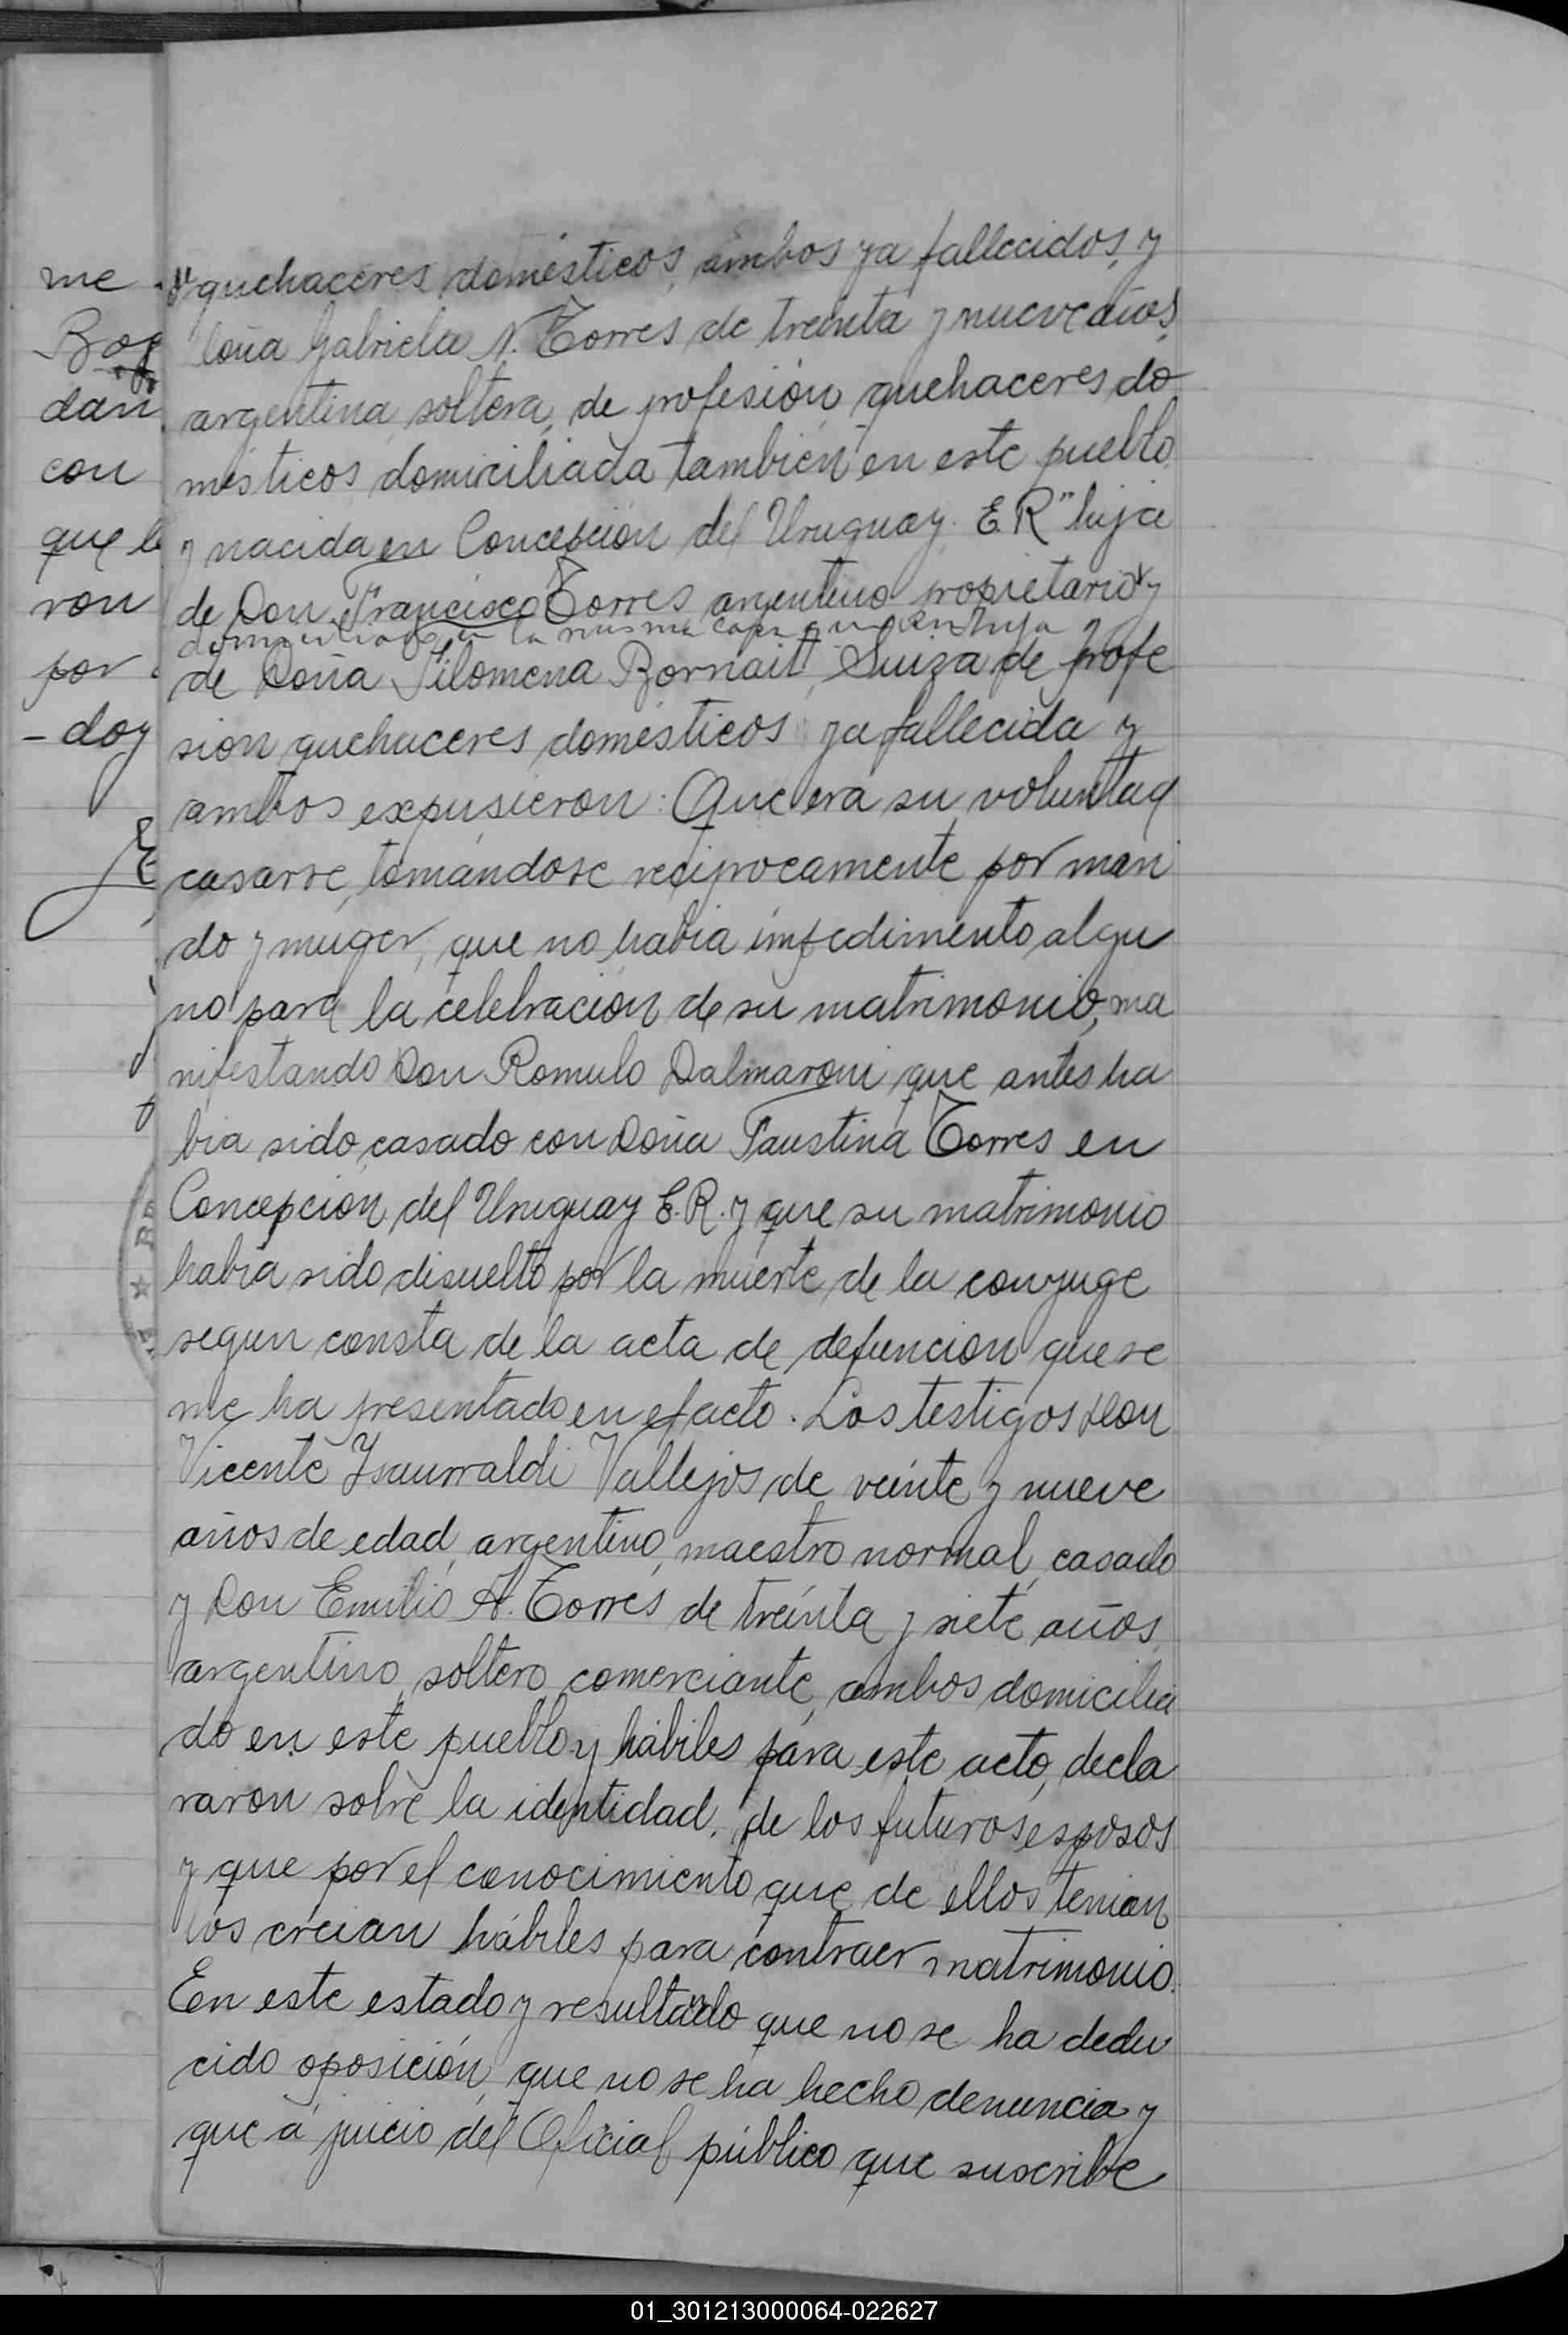 me
Bog
dan
con
que le
ron
por
- doy
quehaceres domésticos, ambos ya fallecidos, y
Doña Gabriela N. Torres de treinta y nueve años,
argentina, soltera, de profesión quehaceres do
mésticos domiciliada también en este pueblo
y nacida en Concepción del Uruguay E. R" hija
de Don Francisco Torres argentino propietario y
domiciliado en la misma casa que su hija
de Doña Filomena Bornait, Suiza de profe
sion quehaceres domésticos ya fallecida y
ambos expusieron: Que era su voluntad
casarse, tomándose reciprocamente por mari
do y muger, que no habia impedimento algu
no para la celebracion de su matrimonio, ma
nifestando Don Romulo Dalmaroni que antes ha
bia sido casado con Doña Faustina Torres en
Concepcion del Uruguay E. R. y que su matrimonio
habia sido disuelto por la muerte de la conyuge
segun consta de la acta de defuncion que se
me ha presentado en el acto. Los testigos Don
Vicente Ysaurraldi Vallejos de veinte y nueve
años de edad, argentino, maestro normal, casado
y Don Emilio A. Torres de treinta y siete años,
argentino, soltero, comerciante, ambos domicilia
do en este pueblo y hábiles para este acto, decla
raron sobre la identidad, de los futuros esposos
y que por el conocimiento que de ellos tenian
los creian hábiles para contraer matrimonio.
En este estado y resultando que no se ha dedu
cido oposición, que no se ha hecho denuncia y
que a juicio del Oficial público que suscribe
01_301213000064-022627